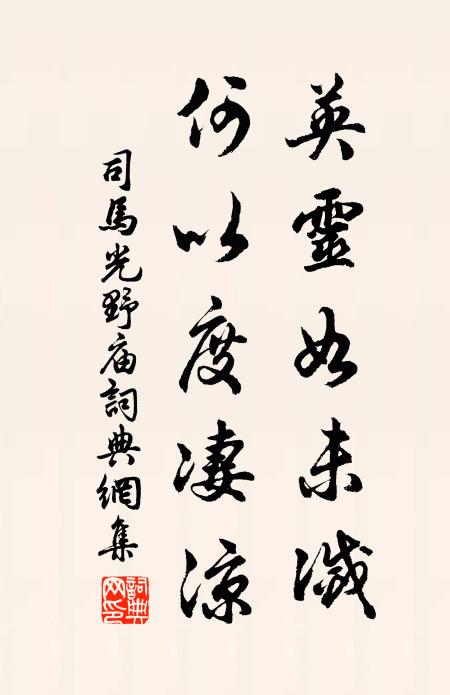 英靈如未滅
何以度凄涼
司馬光野庙詞典網集
詞典网印